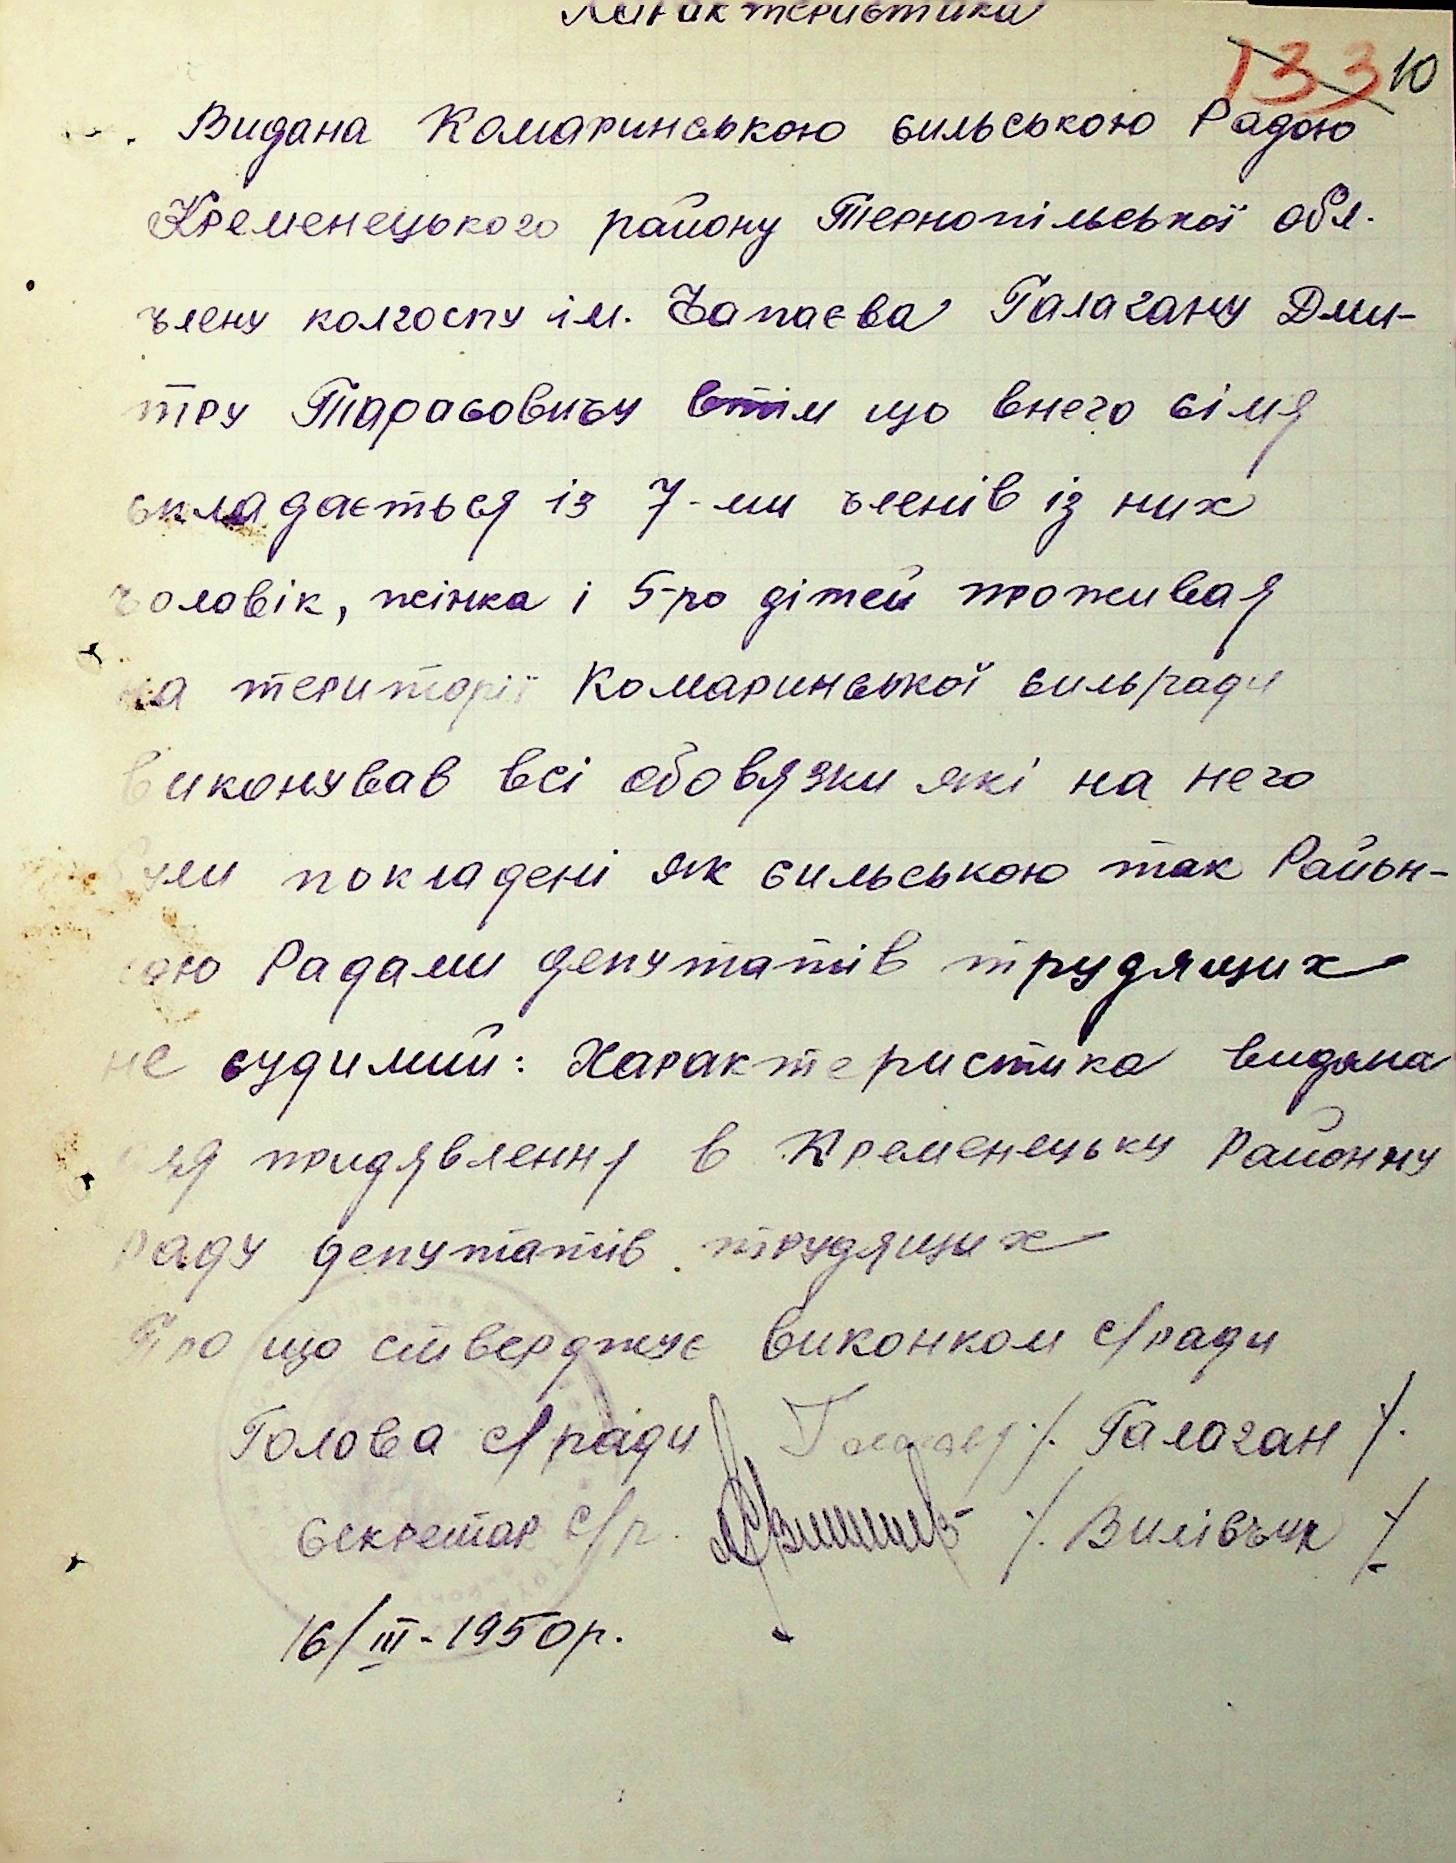 Характеристика
133 10
Видана Комаринською сильською Радою
Кременецького району Тернопільської обл.
члену колгоспу ім. Чапаєва Галагану Дми-
тру Тарасовичу втім що внего сімя
складається із 7-ми членів із них
чоловік, жінка і 5-ро дітей проживая
на території Комаринської сильради
виконував всі обовязки які на него
були покладені як сильською так Район-
ною Радами депутатів трудящих
не судимий: Характеристика видана
для придявлення в Кременецьку Районну
раду депутатів трудящих
Про що стверджує виконком с/ради
Голова с/ради /. Галаган /.
Секретар с/р. /. Вилівчук /.
16/III - 1950р.